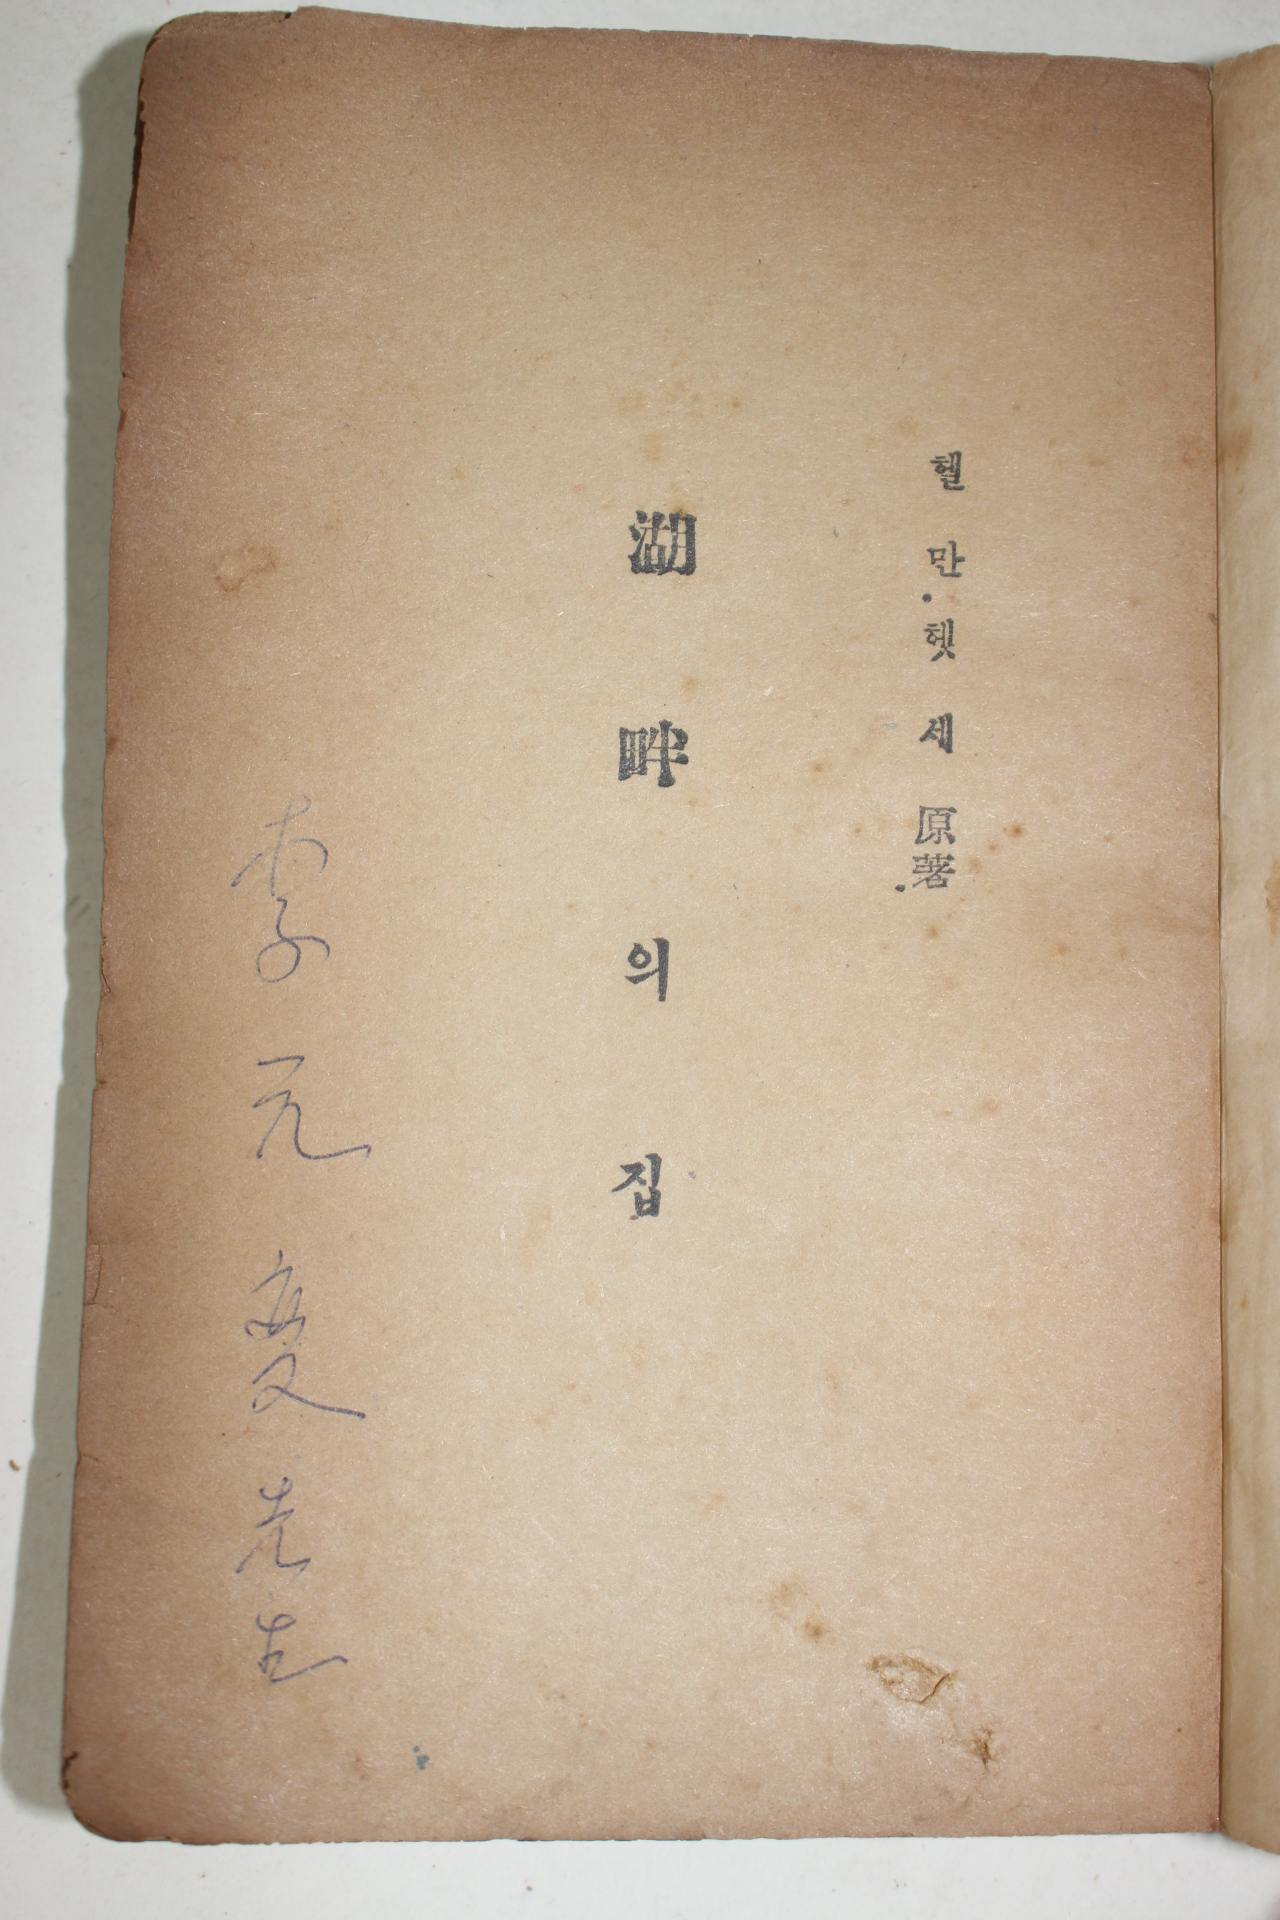 헬만·헷세 原著
湖畔의집
李元慶先生